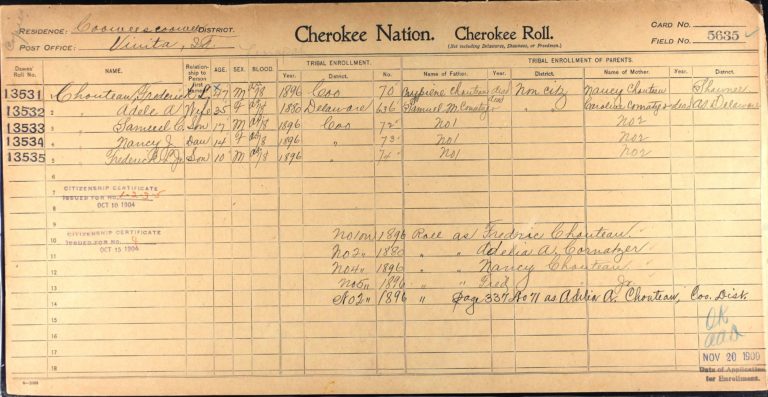 RESIDENCE: Coowescoowee DISTRICT.
Cherokee Nation. Cherokee Roll.
CARD NO.
POST OFFICE: Vinita, I.T.
(Not including Delawares, Shawnees, or Freedmen.)
FIELD NO. 5635
Dawes' Roll No. NAME. Relationship to Person AGE. SEX. BLOOD. TRIBAL ENROLLMENT. TRIBAL ENROLLMENT OF PARENTS.
Year. District. No. Name of Father. Year. District. Name of Mother. Year. District.
13531 1 Chouteau, Frederick 37 M 1896 Coo 70 Chouteau dead Non Citz Nancy Chouteau Shawnee
13532 2 " Adele A Wife 35 F 1880 Delaware 636 Samuel M. dead " " Caroline dead as Delaware
13533 3 " Samuel C Son 17 M 1896 Coo 72 No1 No2
13534 4 " Nancy J Dau 14 F 1896 " 73 No1 No2
13535 5 " Frederick Jr Son 10 M 1896 " 74 No1 No2
6
7
CITIZENSHIP CERTIFICATE
8
ISSUED FOR NO. 1-2-3-5
OCT 10 1904
9
10 No1 on 1896 Roll as Fredric Chouteau
CITIZENSHIP CERTIFICATE
ISSUED FOR NO. 4
11 No2 " 1880 " " Adelia A. Cornatzer
OCT 15 1904
12 No4 " 1896 " " Nancy Chouteau
13 No5 " 1896 " " Fred " Jr.
14 No2 " 1896 " Page 337 No 71 as Adilia A. Chouteau, Coo. Dist.
15
16 OK
17
NOV 20 1900
18
Date of Application
for Enrollment.